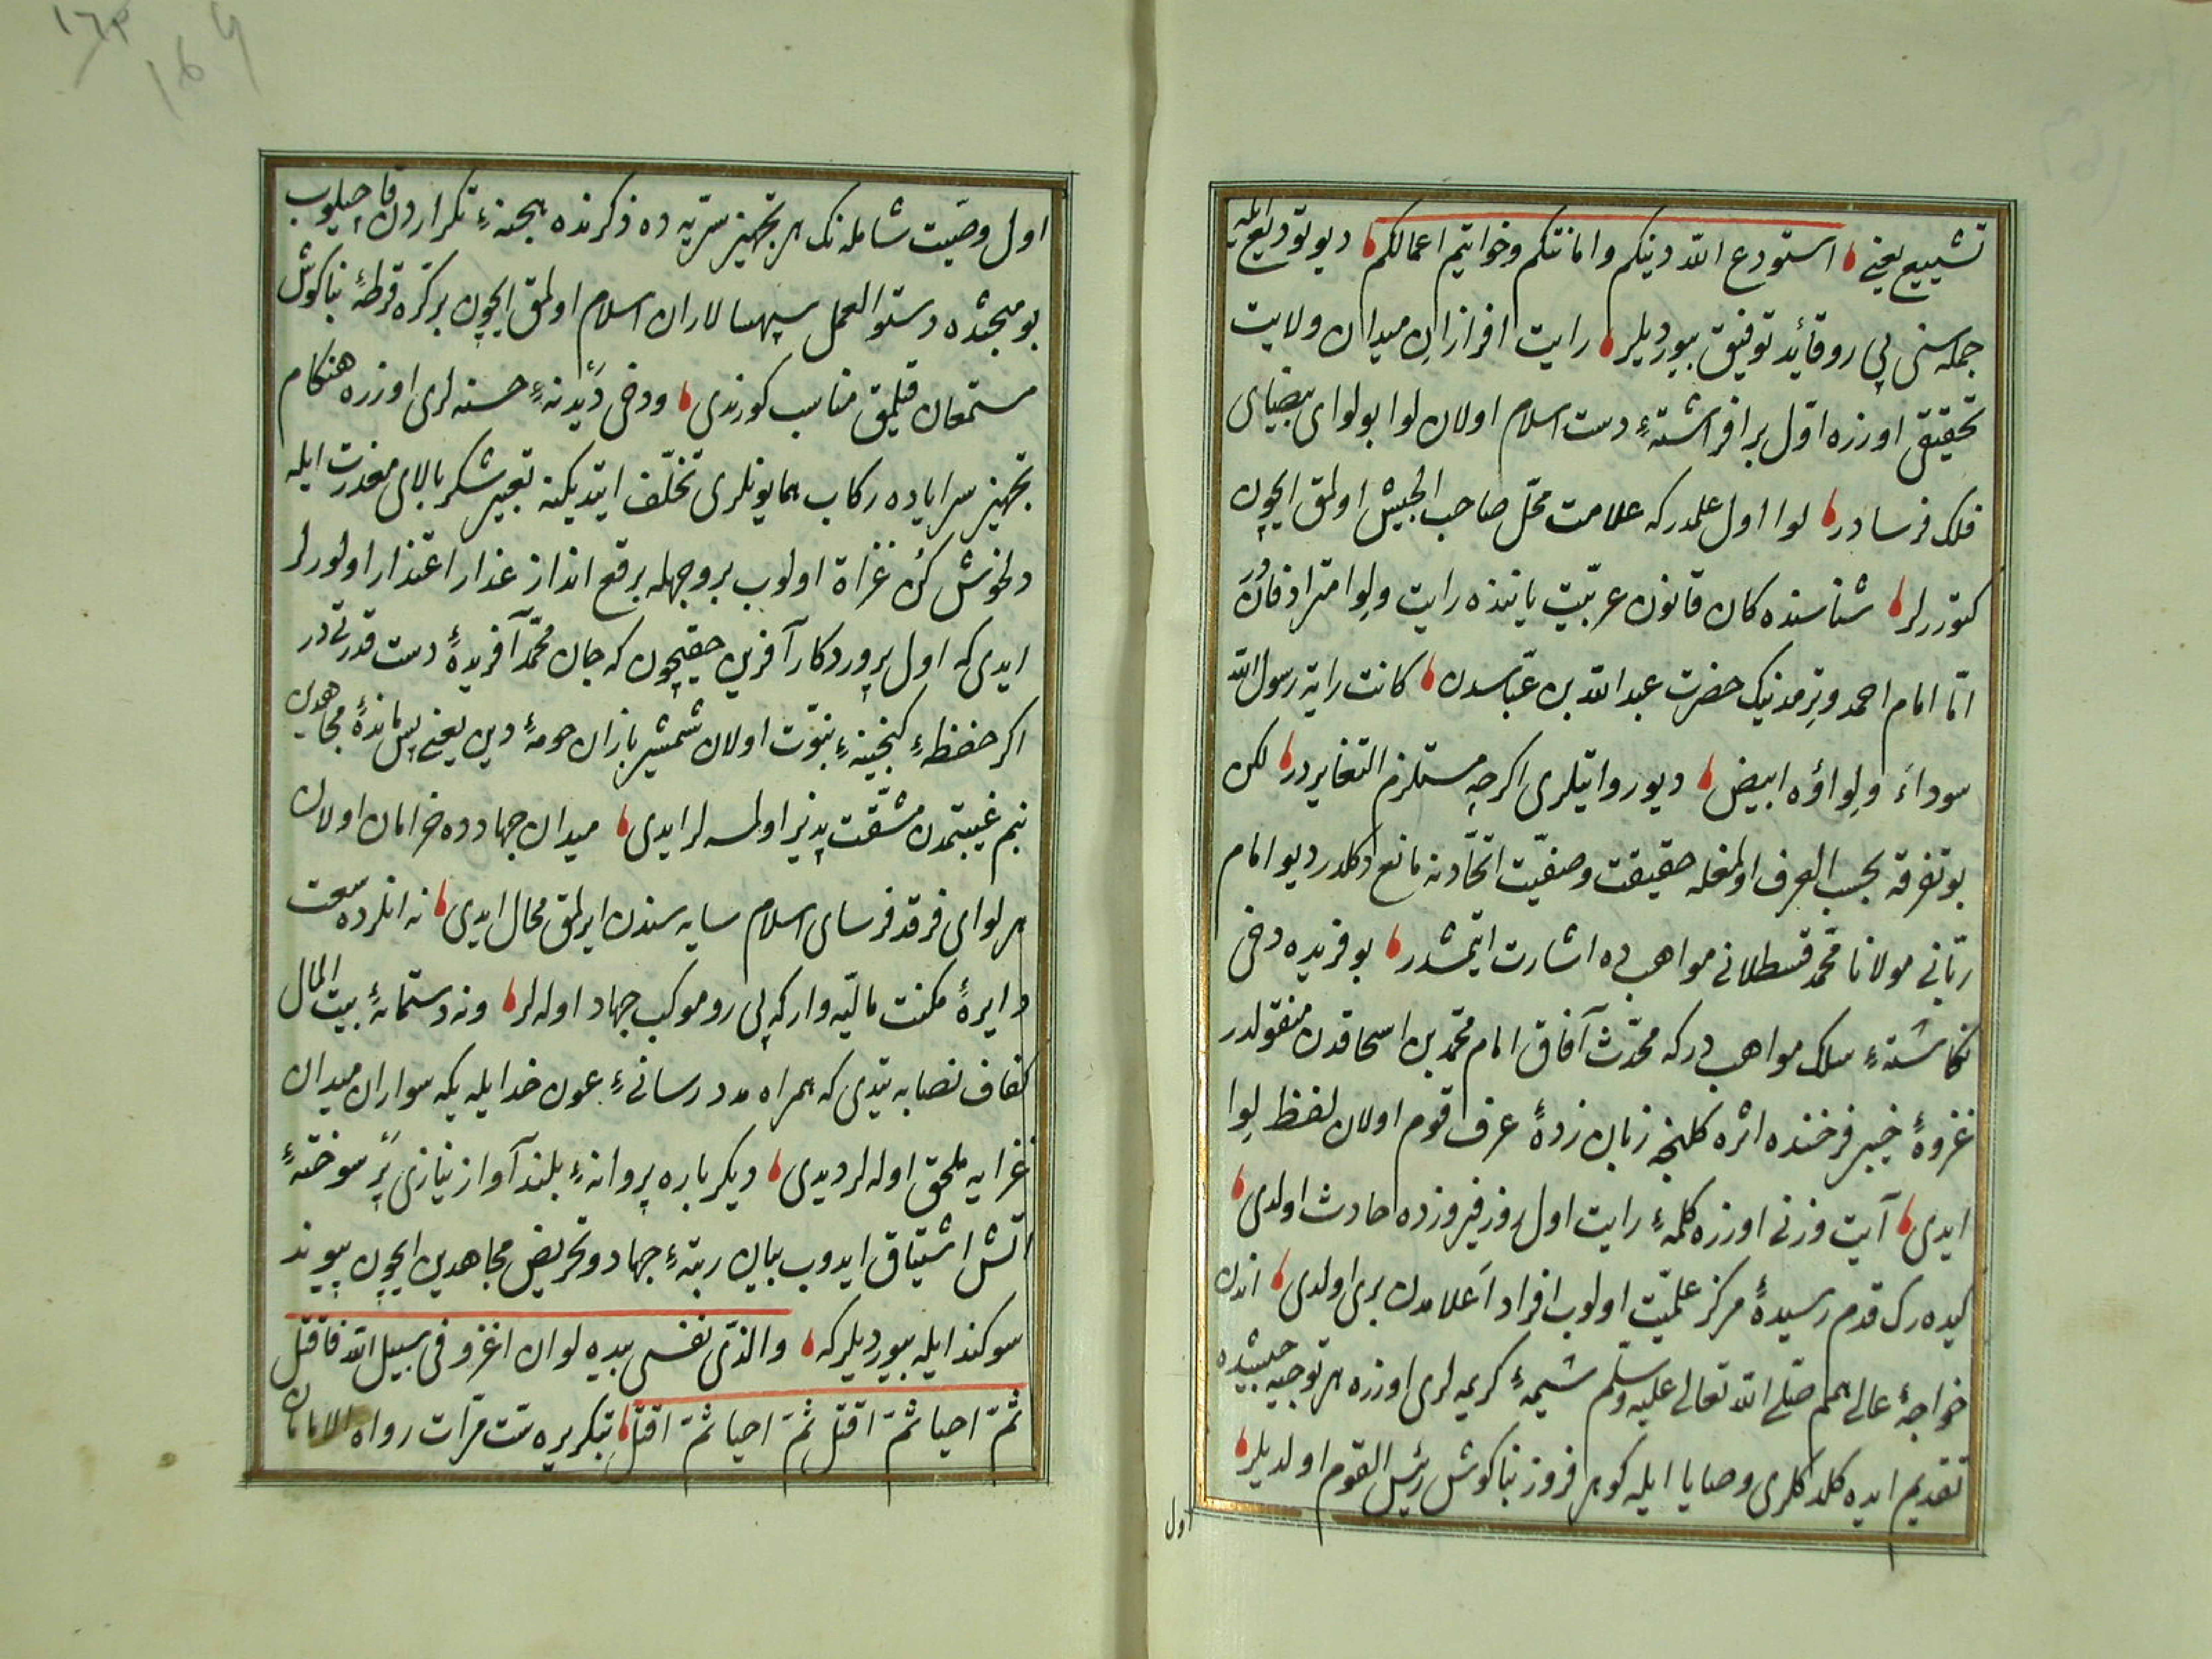 تشییع یعنی استودع الله دینکم وامانتکم وخواتیم اعمالکم دیو تودیع ایله
جمله سنی پی رو قائد توفیق بیوردیلر رایت افرازان میدان ولایت
تحقیق اوزره اول بر افراشتهٔ دست اسلام اولان لوا بو لوای بیضیای
فلک فرسادر لوا اول علمدر که علامت محل صاحب الجیش اولمق ایچون
کتوررلر شناسنده کان قانون عربیّت یاننده رایت ولوا مترادفاندر
امّا امام احمد وترمذینک حضرت عبد الله بن عبّاسدن کانت رایة رسول الله
سوداء ولواؤه ابیض دیو روایتلری اکرچه مستلزم التغایردر لکن
بو تفرقه بحسب العرف اولمغله حقیقت وصفیّت اتّحادنه مانع دکلدر دیو امام
ربّانی مولانا محمّد قسطلانی مواهبده اشارت ایتمشدر بو فریده دخی
نکاشتهٔ سلک مواهبدر که محدّث آفاق امام محمّد بن اسحاقدن منقولدر
غزوهٔ خیبر فرخنده اثره کلنجه زبان زدهٔ عرف قوم اولان لفظ لوا
ایدی آیت وزنی اوزره کلمهٔ رایت اول روز فیروزده حادث اولدی
کیده رک قدم رسیدهٔ مرکز علمیّت اولوب افراد اعلامدن بری اولدی اندن
خواجهٔ عالی همم صلّی الله تعالی علیه وسلّم شیمهٔ کریمه لری اوزره هر توجیه جیشده
تقدیم ایده کلدکلری وصایا ایله کوهر فروز بناکوش رئیس القوم اولدیلر
اول
١٦٣
169
اول وصیّت شامله نک هر تجهیز سریّه ده ذکرنده هجنهٔ تکراردن قاچیلوب
بو مبحثده دستور العمل سپهسالاران اسلام اولمق ایچون بر کره قرطهٔ بناکوش
مستمعان قیلمق مناسب کورندی ودخی دیدنهٔ حسنه لری اوزره هنکام
تجهیز سرایاده رکاب همایونلری تخلّف ایتدیکنه تعبیر شکر بالای معذرت ایله
دلخوش کن غزاة اولوب بر وجهله برقع انداز عذار اعتذار اولورلر
ایدی که اول پروردکار آفرین حقیچون که جان محمّد آفریدهٔ دست قدرتیدر
اکر حفظهٔ کنجینهٔ نبوّت اولان شمشیر بازان حومهٔ دین یعنی پس ماندهٔ مجاهدین
بنم غیبتمدن مشقّت پذیر اولمسه لر ایدی میدان جهادده خرامان اولان
هر لوای فرقد فرسای اسلام سایه سندن ایرلمق محال ایدی نه انلرده سعت
دایرهٔ مکنت مالیّه وار که پی رو موکب جهاد اوله لر ونه دستمایهٔ بیت المال
کفاف نصابه یتدی که همراه مدد رسانیٔ عون خدا ایله یکه سواران میدان
غزایه ملحق اوله لر دیدی دیکر باره پروانهٔ بلند آواز نیازی پر سوختهٔ
آتش اشتیاق ایدوب بیان رتبهٔ جهاد وتحریض مجاهدین ایچون پیوند
سوکند ایله بیوردیلر که والذی نفسی بیده لوان اغزو فی سبیل الله فاقتل
ثمّ احیا ثمّ اقتل ثمّ احیا ثمّ اقتل بتکریره ست مرّات رواه الامامان